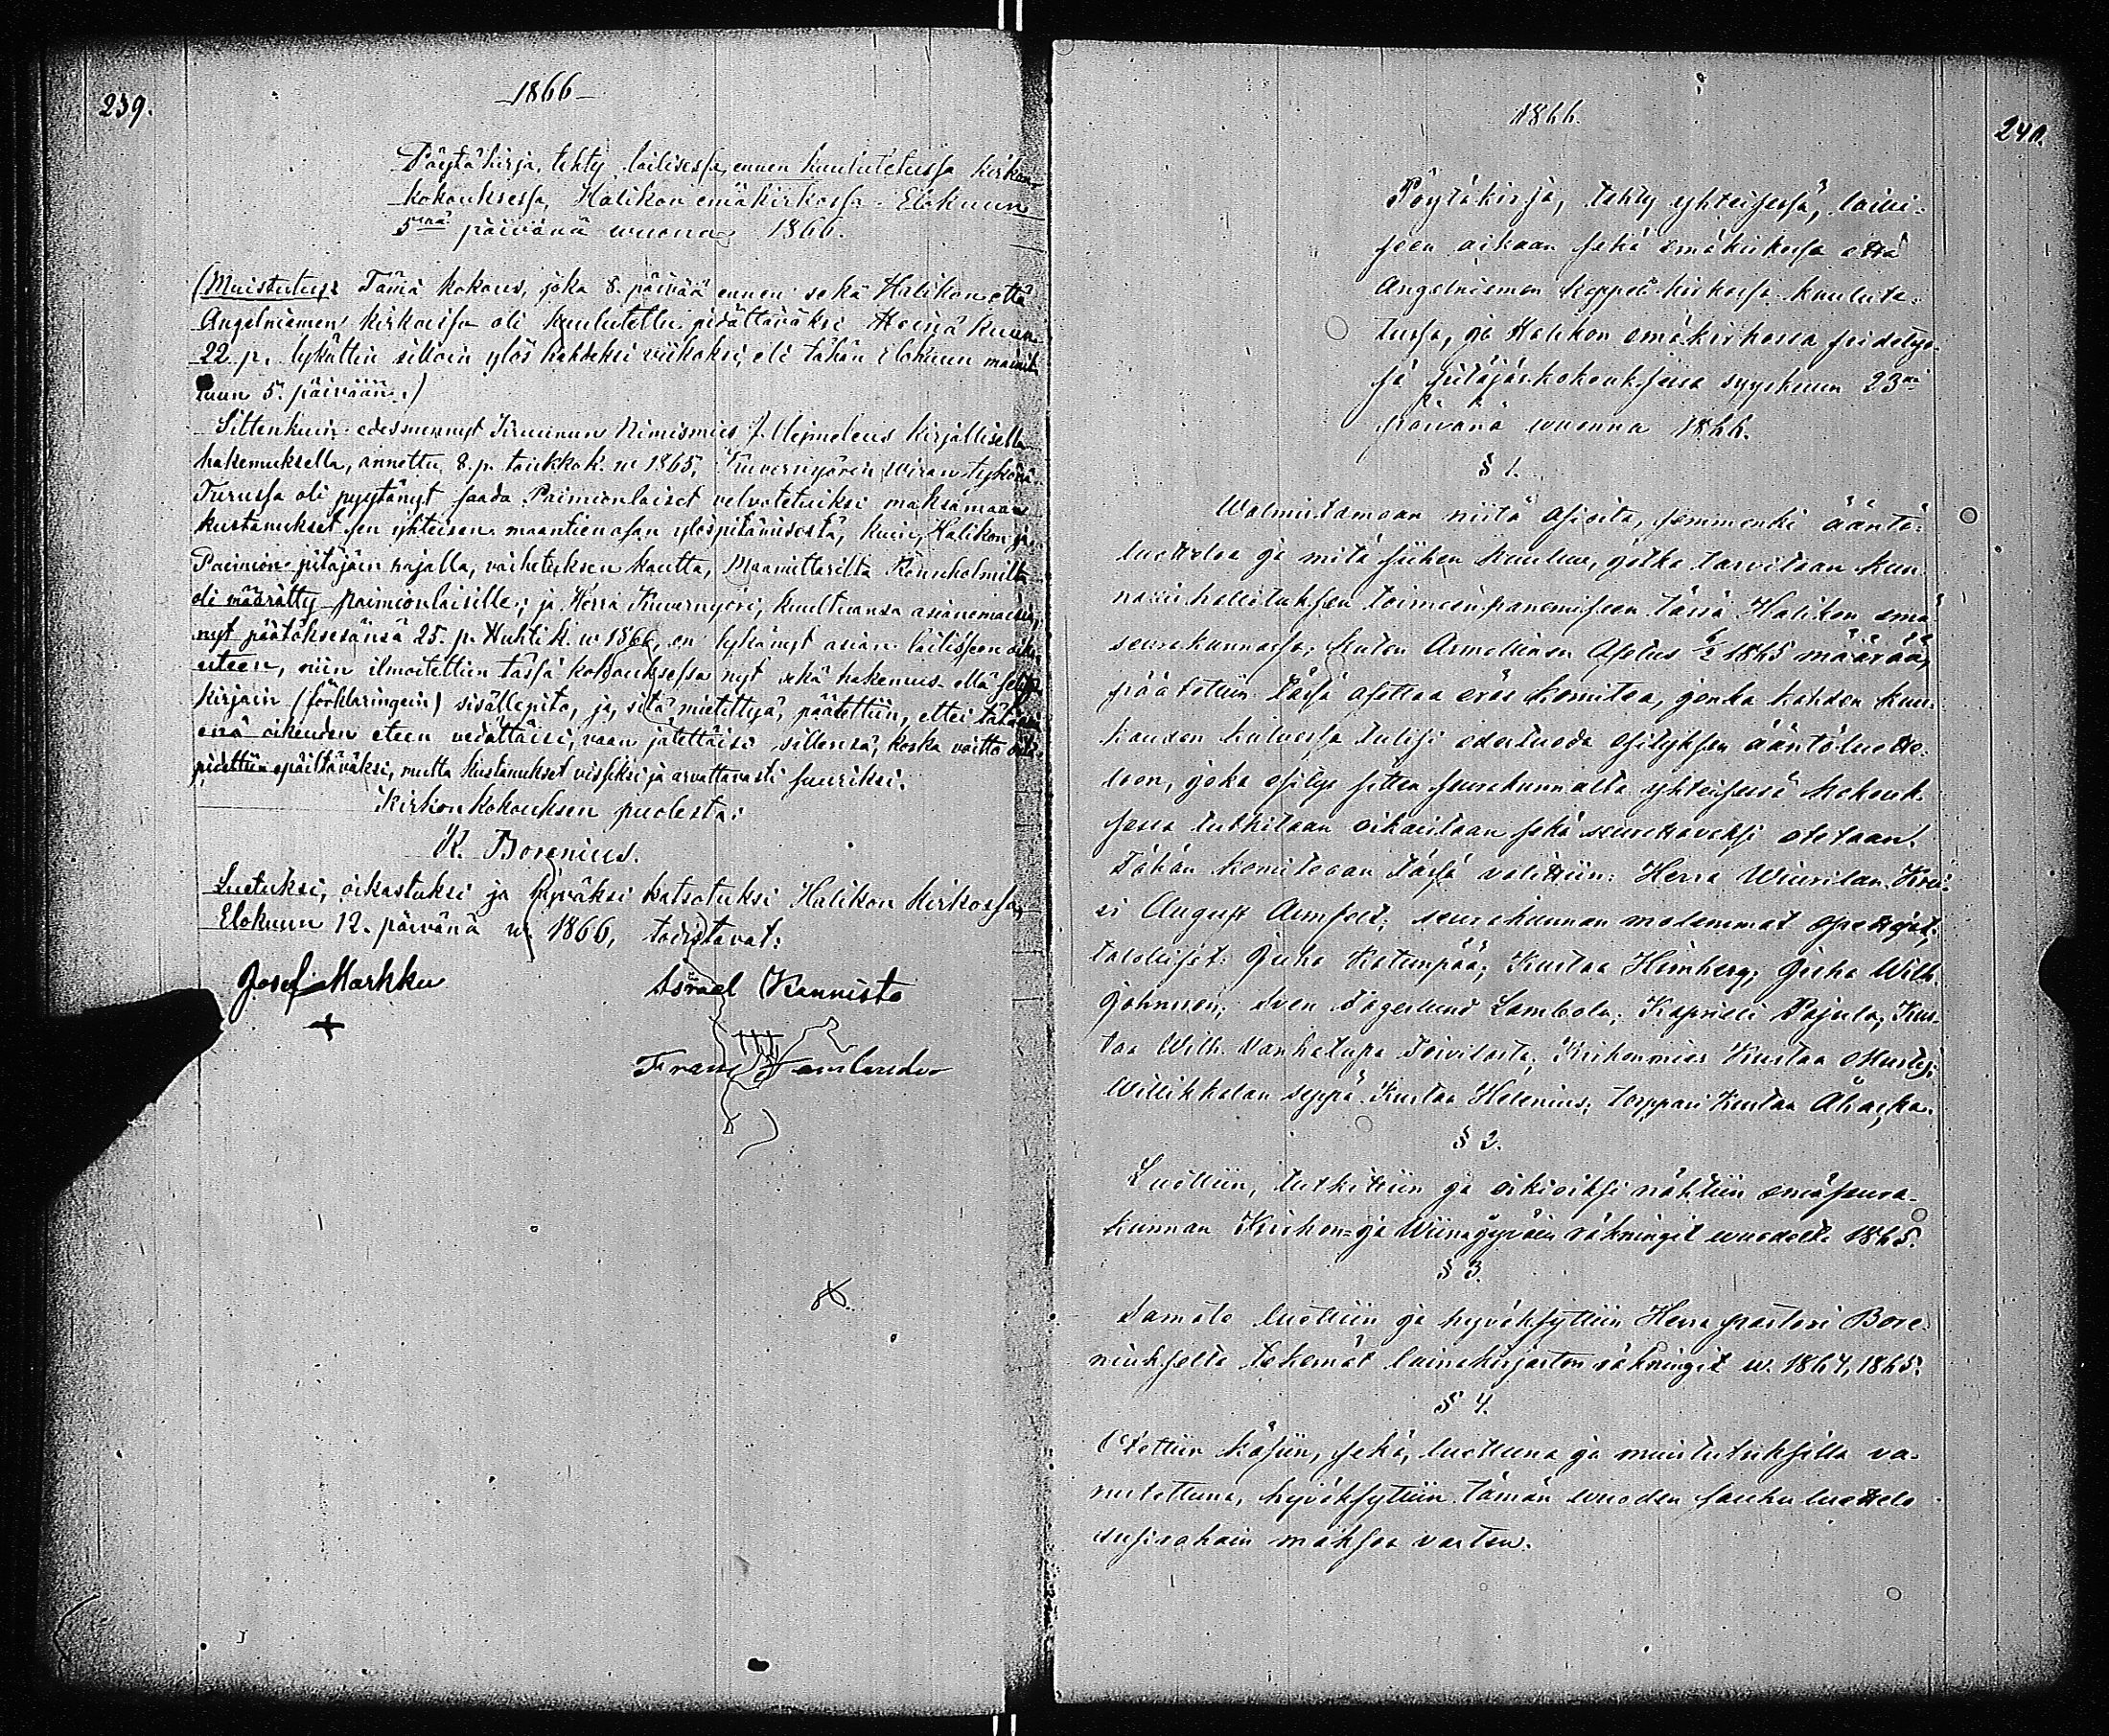 239.
-1866-
Pöytäkirja, tehty lailisessa, ennen kuulutetussa kirkon-
kokouksessa, Halikon emäkirkossa Elokuun
5nä päivänä wuonna 1866.
(Muistutus: Tämä kokous, joka 8. päivää ennen sekä Halikon että
Angelniemen kirkoissa oli kuulutettu pidättäväksi Heinä kuun
22 p. lykättiin silloin ylös kahdeksi viikoksi, eli tähän Elokuun mainit-
tuun 5. päivään.)
Sittenkuin edesmennyt Kruunun Nimismies kirjallisella
hakemuksella, annettu 8. p. toukkok. w 1865, Kuvernyörin viran tykönä
Turussa oli pyytänyt saada Paimionlaiset velvotetuiksi maksamaan
kustanukset sen yhteisen maantien osan ylöspitämisestä, kuin, Halikon ja
Paimion pitäjäin rajalla, vaihetuksen kautta, Maamittarilta
oli määrätty paimionlaisille; ja Herra Kuvernyöri, kuultuansa asianomaisia,
nyt päätöksesänsä 25. p. Huhti k. w 1866, on lykänyt asian lailisseen oike-
uteen, niin ilmoitettiin tässä kokouksessa nyt sekä hakemus että selitys
kirjain (förklaringein) sisällepito, ja, sitä mietittyä, päätettiin, ettei tätä asiaa
enä oikeuden eteen vedättäisi, vaan jätettäisi sillensä, koska voitto
pidettiin epäiltäväksi, mutta kustanukset visseksi ja arvattavasti suuriksi.
Kirkonkokouksen puolesta:
K. Borenius.
Luetuksi, oikastuksi ja hyväksi katsotuksi Halikon kirkossa,
Elokuun 12. päivänä w. 1866, todistavat:
Josef Markku Israel Kannisto
Frans
240.
1866.
Pöytäkirja, tehty yhteisessä, lailli-
seen aikaan sekä emäkirkossa että
Angelniemen kappeli kirkossa kuulute-
tussa, ja Halikon emäkirkossa
sä pitäjänkokouksessa syyskuun 23na
päivänä wuonna 1866.
§ 1.
Walmistamaan niitä asioita, semmenki ääntö-
luetteloa ja mitä siihen kuuluu, jotka tarvitaan kun-
nallishallituksen toimeenpanemiseen tässä Halikon emä-
seurakunnassa, kuten Armollinen Asetus 6/2 1865 määrää,
päätettiin tässä asettaa eräs komitea, jonka kahden kuu-
kauden kuluessa tulisi edestuoda esityksen ääntöluette-
loon, joka esitys sitten seurakunnalta yhteisessä kokouk-
sessa tutkitaan oikaistaan sekä seurattavaksi otetaan.
Tähän komiteaan tässä valittiin: Herra Wiurilan Krei-
vi August Armfelt; seurakunnan molemmat opettajat;
talolliset: Juha Katunpää; Kustaa Heinberg; Juha Wilh.
Johnsson; Sven Sägerlund Lambola; Kaprieli Pajula; Kus-
taa Wilh. Vanhatupa Toivilasta; Kirkonmies Kustaa
Willikkalan seppä Kustaa Helenius; torppari Kustaa
§ 2.
Luettiin, tutkittiin ja oikioiksi nähtiin emäseura-
kunnan Kirkon- ja Wiinajyväin räkningit wuodelta 1865.
§ 3.
Samate luettiin ja hyväksyttiin Herra pastori Bore-
niukselta tekemät lainakirjaston räkningit w. 1864, 1865.
§ 4.
Otettiin käsiin, sekä, luettuna ja muistutuksilla va-
rustettuna, hyväksyttiin tämän wuoden sauhu luettelo
susirahain maksoa varten.